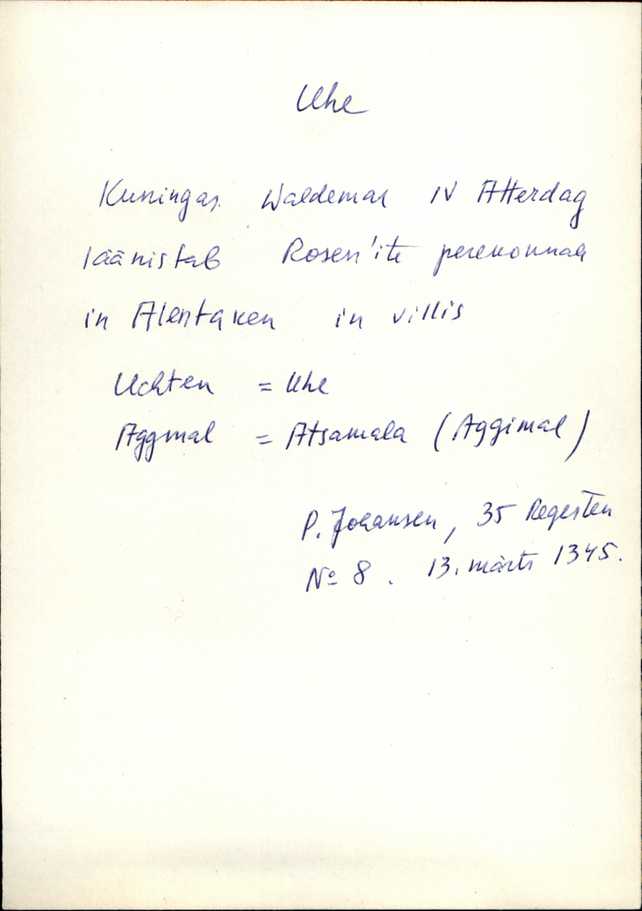 Uhe
Kuningas Waldemar IV Atterdag
läänistab Rosen'ite perekonnale
in Alentaken in villis
Uchten = Uhe
Aggmal = Atsamala (Aggimal)
P. Johansen, 35 Regesten
No 8. 13. märts 1345.